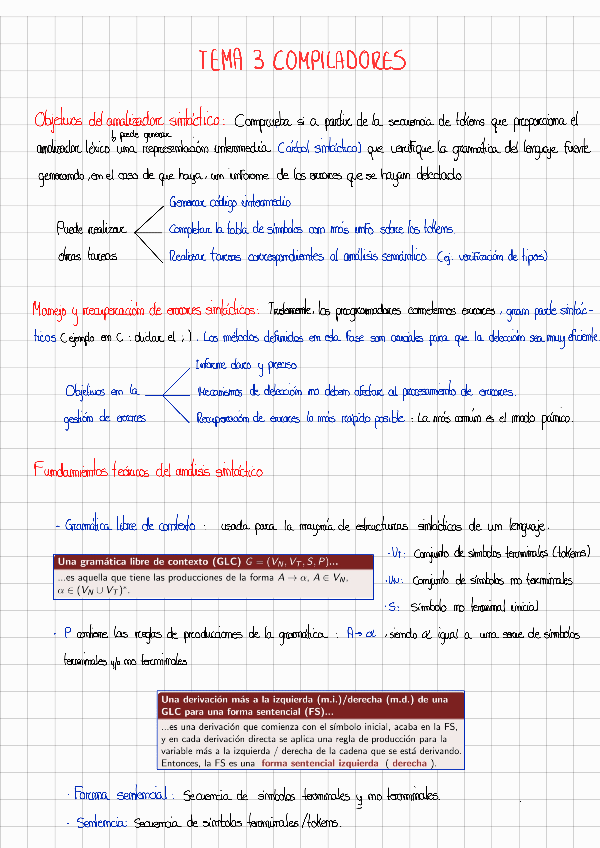 TEMA 3 COMPILADORES
Objetivos del analizador sintáctico: Comprueba si a partir de la secuencia de tokens que proporciona el
↳ puede generar
analizador léxico una representación intermedia (árbol sintáctico) que verifique la gramática del lenguaje fuente
generando, en el caso de que haya, un informe de los errores que se hayan detectado
Generar código intermedio
Puede realizar
Completar la tabla de símbolos con más info sobre los tokens.
otras tareas
Realizar tareas correspondientes al análisis semántico (ej. verificación de tipos)
Manejo y recuperación de errores sintácticos: los programadores cometemos errores, gran parte sintác-
ticos (ejemplo en C: olvidar el ;). Los métodos definidos en esta fase son cruciales para que la detección sea muy eficiente.
Informe claro y preciso
Objetivos en la
Mecanismos de detección no deben afectar al procesamiento de errores.
gestión de errores
Recuperación de errores lo más rápido posible: La más común es el modo pánico.
Fundamientos teóricos del análisis sintáctico
- Gramática libre de contexto: usada para la mayoría de estructuras sintácticas de un lenguaje.
Una gramática libre de contexto (GLC) G = (V_N, V_T, S, P)...
...es aquella que tiene las producciones de la forma A → α, A ∈ V_N,
α ∈ (V_N ∪ V_T)*.
· VT: Conjunto de símbolos terminales (tokens)
· VN: Conjunto de símbolos no terminales
· S: Símbolo no terminal inicial
· P contiene las reglas de producciones de la gramática: A → α, siendo α igual a una serie de símbolos
terminales y/o no terminales
Una derivación más a la izquierda (m.i.)/derecha (m.d.) de una
GLC para una forma sentencial (FS)...
...es una derivación que comienza con el símbolo inicial, acaba en la FS,
y en cada derivación directa se aplica una regla de producción para la
variable más a la izquierda / derecha de la cadena que se está derivando.
Entonces, la FS es una forma sentencial izquierda ( derecha ).
· Forma sentencial: Secuencia de símbolos terminales y no terminales.
· Sentencia: Secuencia de símbolos terminales/tokens.